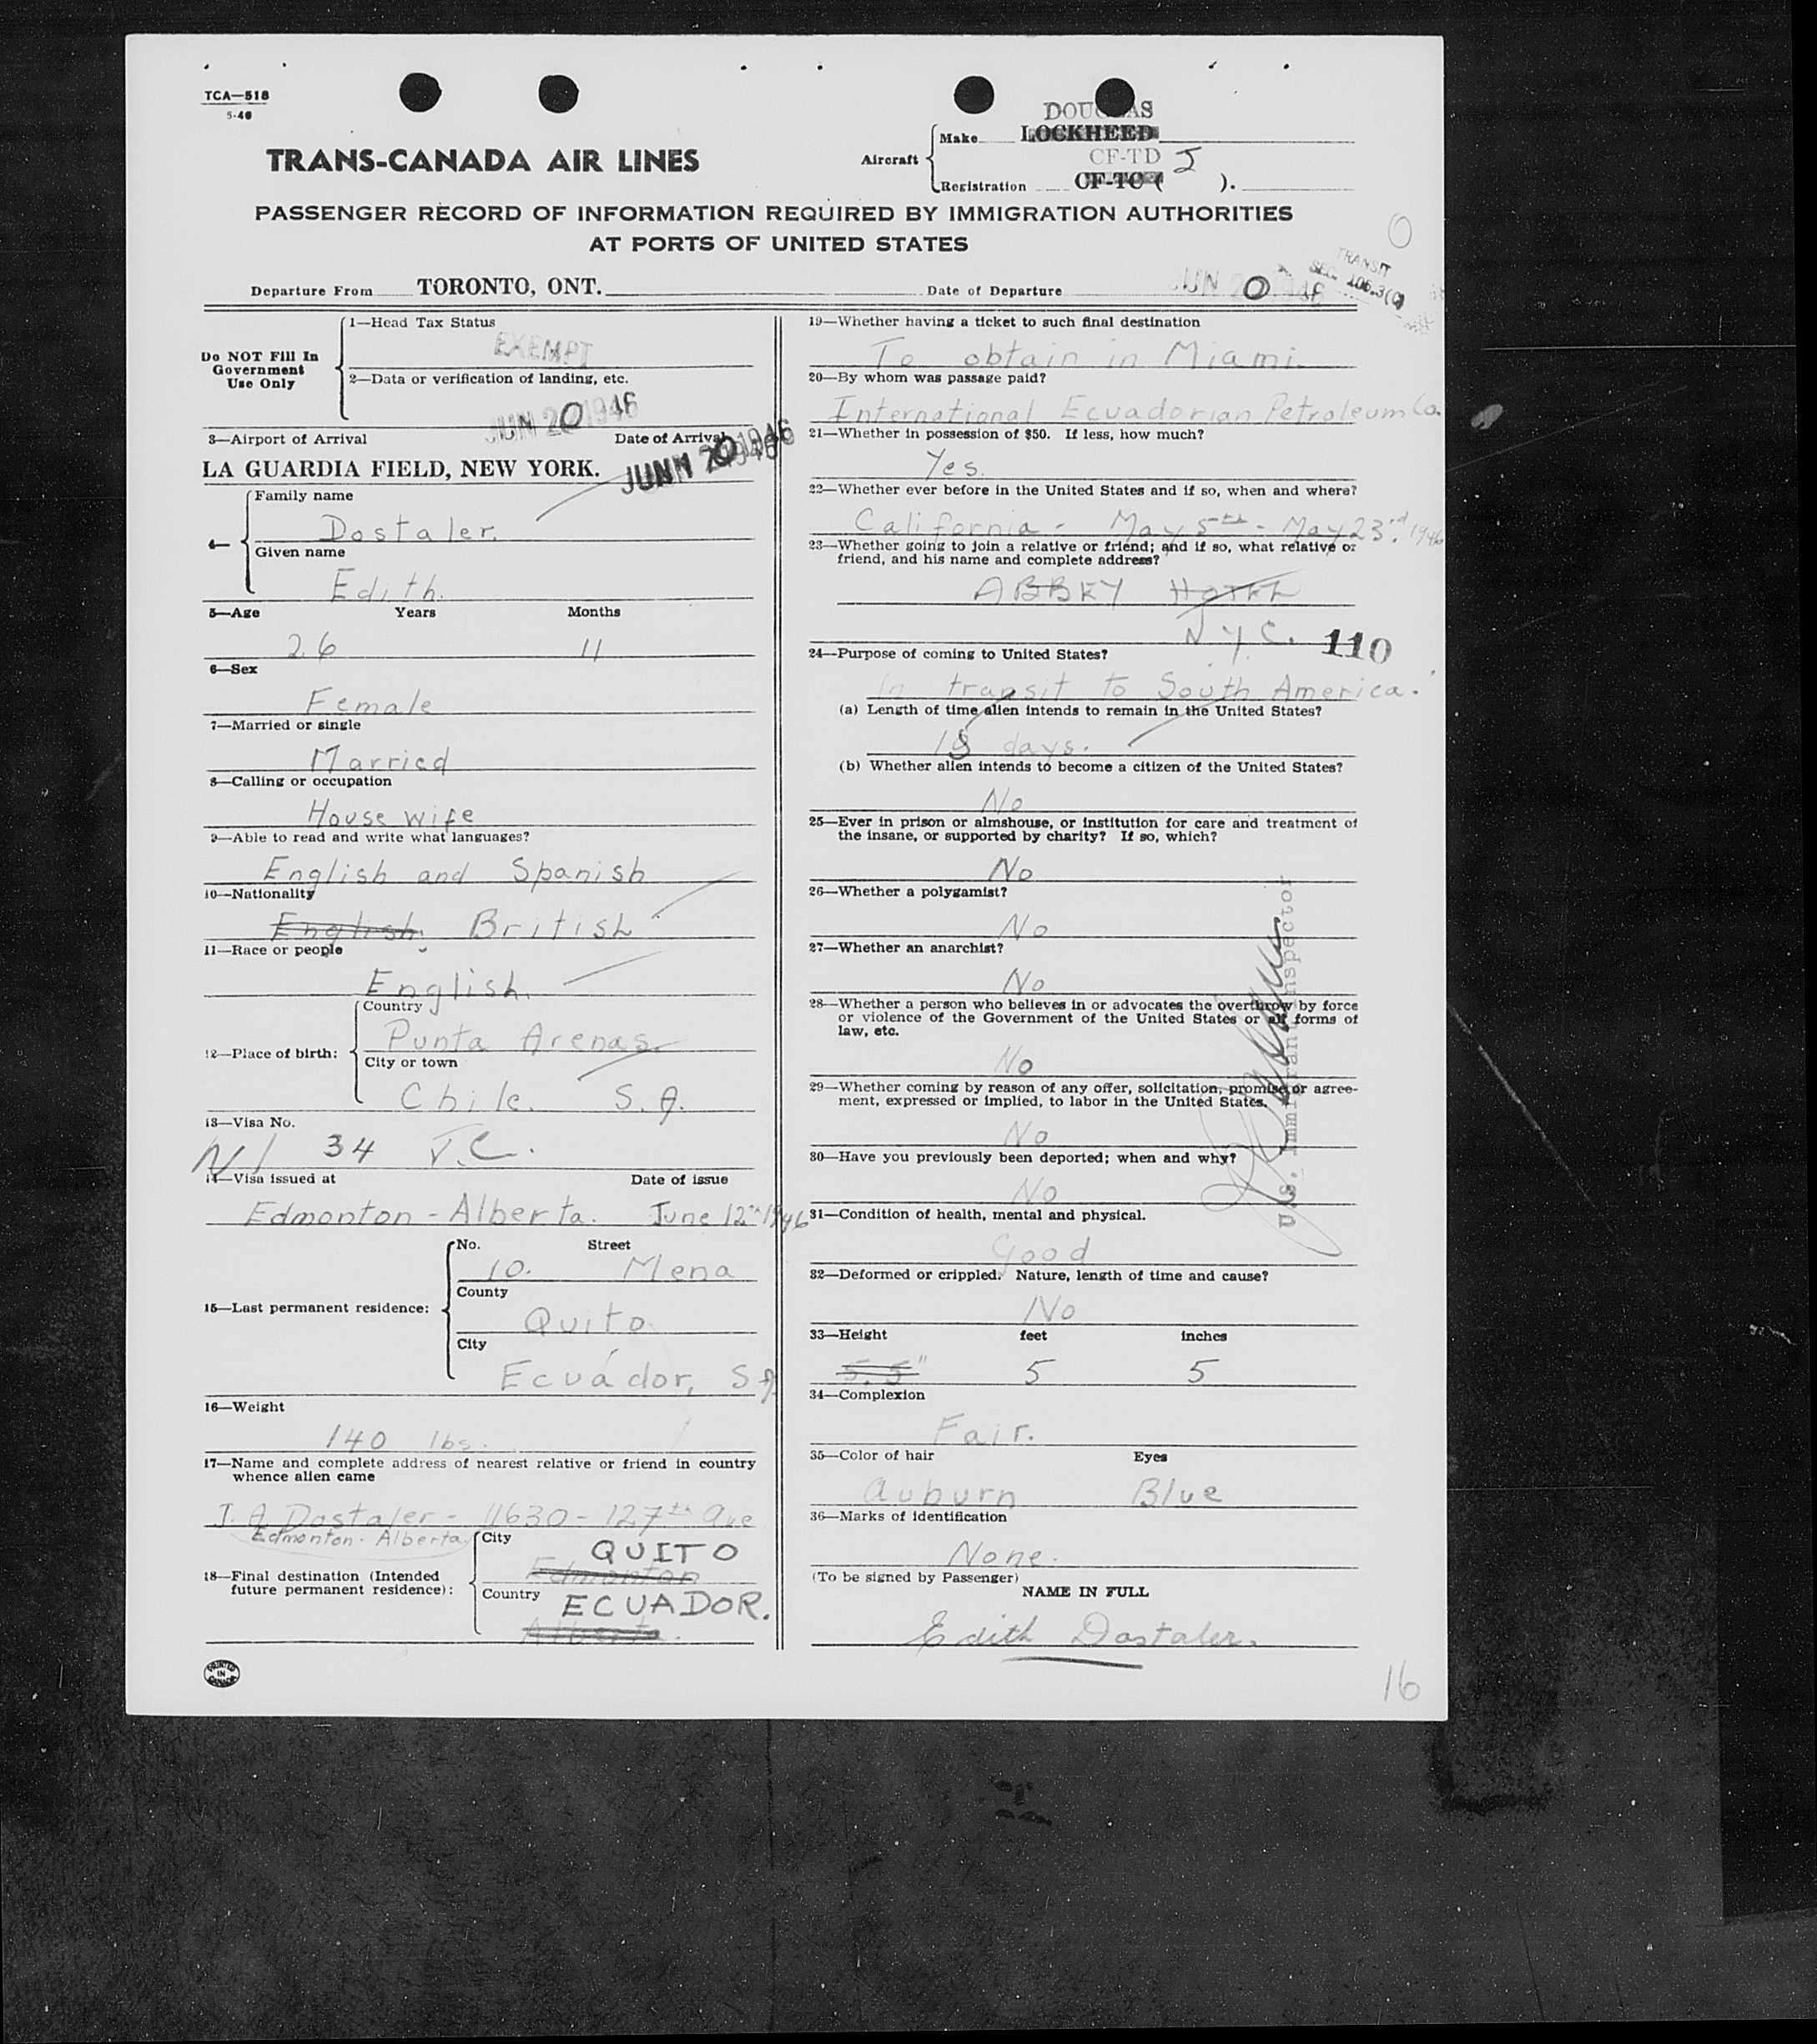 TCA—518
5-46
DOUGLAS
Make LOCKHEED
TRANS-CANADA AIR LINES
Aircraft
CF-TD J
Registration CF-TC ( ).
PASSENGER RECORD OF INFORMATION REQUIRED BY IMMIGRATION AUTHORITIES
AT PORTS OF UNITED STATES
TRANSIT
SEC. 106.3(C)
Departure From TORONTO, ONT. Date of Departure JUN 20 1946
Do NOT Fill In
Government
Use Only
1—Head Tax Status
EXEMPT
2—Data or verification of landing, etc.
JUN 20 1946
3—Airport of Arrival Date of Arrival
LA GUARDIA FIELD, NEW YORK. JUN 20 1946
4—
Family name
Dostaler.
Given name
Edith.
5—Age Years Months
26 11
6—Sex
Female
7—Married or single
Married
8—Calling or occupation
House wife
9—Able to read and write what languages?
English and Spanish
10—Nationality
English. British
11—Race or people
English.
12—Place of birth:
Country
Punta Arenas.
City or town
Chile. S.A.
13—Visa No.
N/ 34 T.C.
14—Visa issued at Date of issue
Edmonton - Alberta. June 12th 1946
15—Last permanent residence:
No. Street
10. Mena
County
Quito.
City
Ecuador, S.A.
16—Weight
140 lbs.
17—Name and complete address of nearest relative or friend in country
whence alien came
J. A. Dostaler - 11630 - 127th Ave
Edmonton - Alberta
18—Final destination (Intended
future permanent residence):
City
QUITO
Edmonton
Country
ECUADOR.
Alberta.
PRINTED
IN
CANADA
19—Whether having a ticket to such final destination
To obtain in Miami.
20—By whom was passage paid?
International Ecuadorian Petroleum Co.
21—Whether in possession of $50. If less, how much?
Yes.
22—Whether ever before in the United States and if so, when and where?
California - May 5th - May 23rd. 1946
23—Whether going to join a relative or friend; and if so, what relative or
friend, and his name and complete address?
ABBEY HOTEL
N.Y.C. 110
24—Purpose of coming to United States?
In transit to South America.
(a) Length of time alien intends to remain in the United States?
18 days.
(b) Whether alien intends to become a citizen of the United States?
No
25—Ever in prison or almshouse, or institution for care and treatment of
the insane, or supported by charity? If so, which?
No
26—Whether a polygamist?
No
27—Whether an anarchist?
No
28—Whether a person who believes in or advocates the overthrow by force
or violence of the Government of the United States or all forms of
law, etc.
No
29—Whether coming by reason of any offer, solicitation, promise or agree-
ment, expressed or implied, to labor in the United States.
No
30—Have you previously been deported; when and why?
No
U.S. Immigrant Inspector
31—Condition of health, mental and physical.
Good
32—Deformed or crippled. Nature, length of time and cause?
No
33—Height feet inches
5.5" 5 5
34—Complexion
Fair.
35—Color of hair Eyes
Auburn Blue
36—Marks of identification
None.
(To be signed by Passenger)
NAME IN FULL
Edith Dostaler.
16